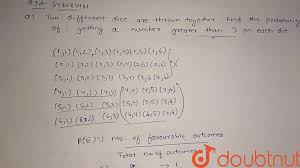 Q Id- 648084161
Q) Two different dice are thrown together find the probability
of : getting a number greater than 3 on each die
(1,1) (1,2), (1,3) (1,4) (1,5) (1,6)
(2,1) (2,2) (2,3) (2,4) (2,5) (2,6)
(3,1) (3,2) (3,3) (3,4) (3,5) (3,6)
(4,1) (4,2) (4,3) (4,4) (4,5) (4,6)
(5,1) (5,2) (5,3) (5,4) (5,5) (5,6)
(6,1) (6,2) (6,3) (6,4) (6,5) (6,6)
P(E) = no. of favourable outcomes
Total no of outcomes
doubtnut